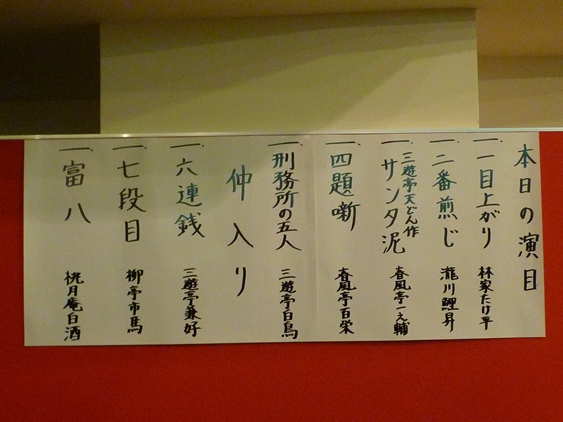 本日の演目
一、一目上がり 林家たけ平
一、二番煎じ 瀧川鯉昇
一、三遊亭天どん作 サンタ泥 春風亭一之輔
一、四題噺 春風亭百栄
一、刑務所の五人 三遊亭白鳥
仲入り
一、六連銭 三遊亭兼好
一、七段目 柳亭市馬
一、富八 桃月庵白酒